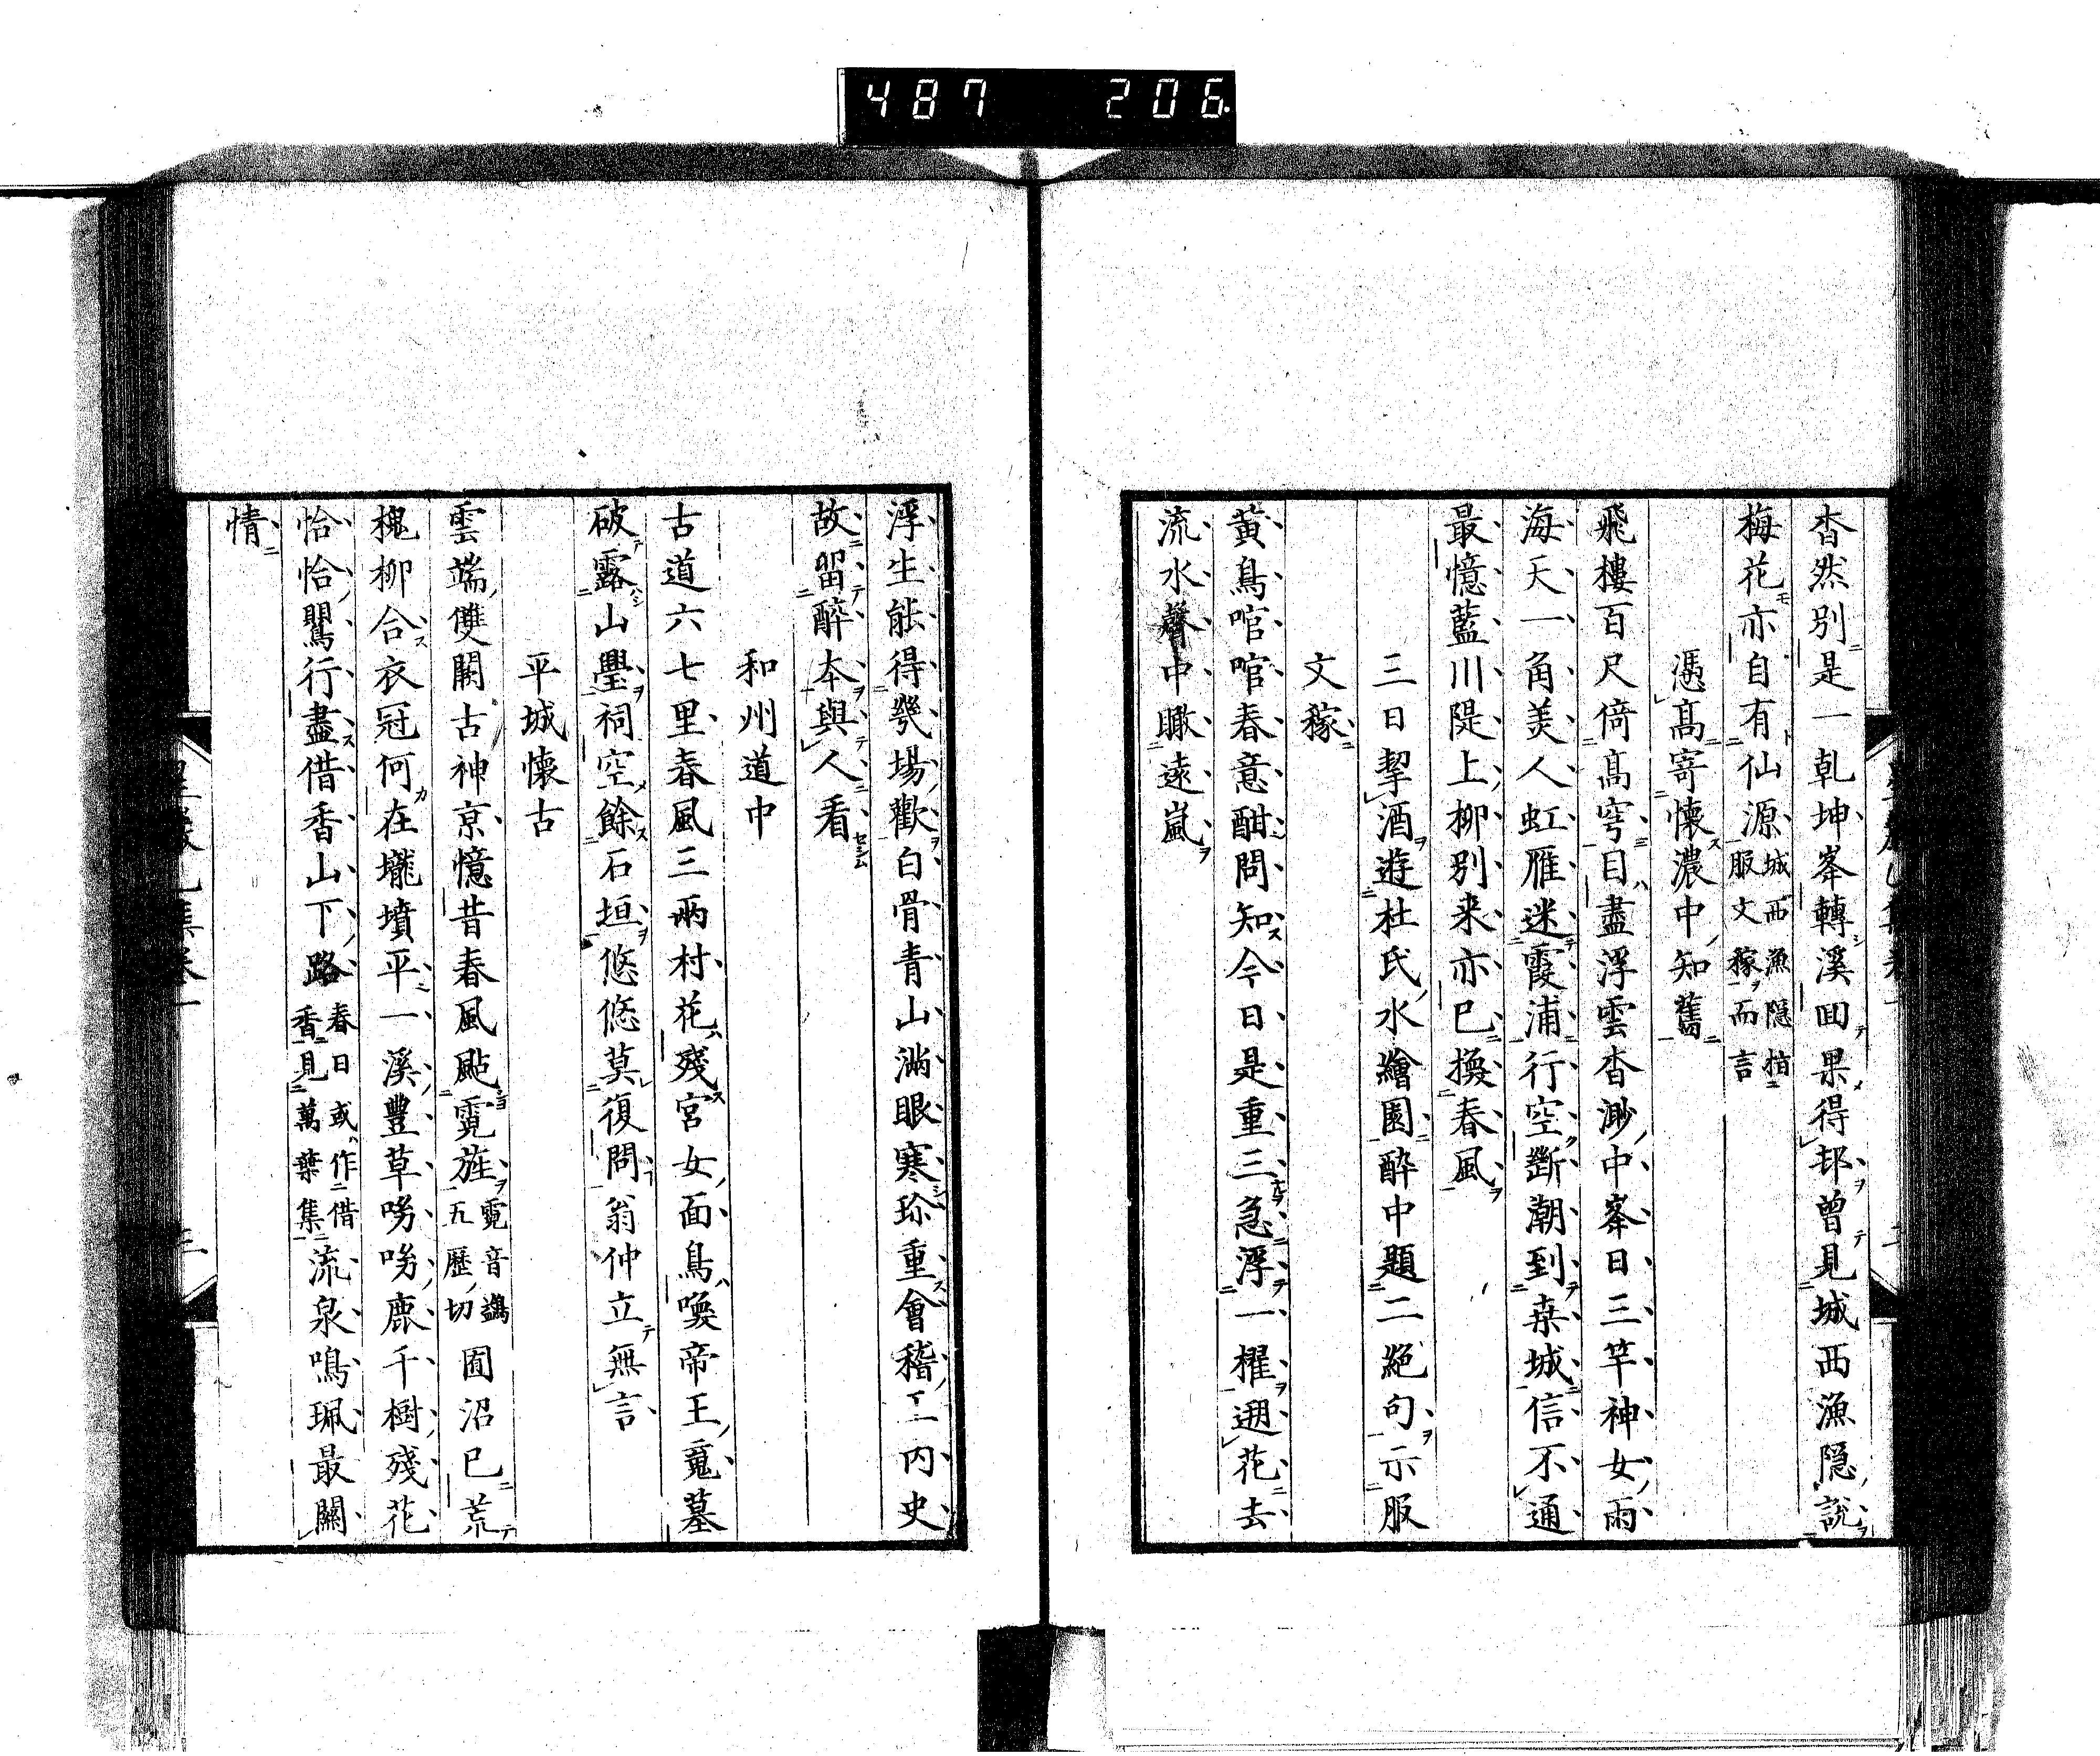 487 206
杳然別是一乹坤峯轉溪囬果得邨曾見城西漁隠説
梅花亦自有仙源城西漁隠指服文稼而言
憑髙寄懷濃中知舊
飛樓百尺倚髙穹目盡浮雲杳渺中峯日三竿神女雨
海天一角美人虹雁迷霞浦行空斷潮到桒城信不通
最憶藍川隄上柳別来亦巳換春風
三日挈酒遊杜氏水繪園酔中題二絶句示服
文稼
黄鳥喧喧春意酣問知今日是重三急浮一櫂遡花去
流水聲中瞰遠嵐
浮生能得幾場歡白骨青山滿眼寒珎重會稽工内史
故留醉本與人看
和州道中
古道六七里春風三兩村花殘宮女面鳥喚帝王䰟墓
破露山壘祠空餘石垣悠悠莫復問翁仲立無言
平城懷古
雲端雙闕古神亰憶昔春風颭霓旌霓音鷁五歴切囿沼已荒
槐柳合衣冠何在壠墳平一溪豐草呦呦鹿千樹殘花
恰恰鸎行盡借香山下路春日或作借香見萬葉集流泉鳴珮最關
情